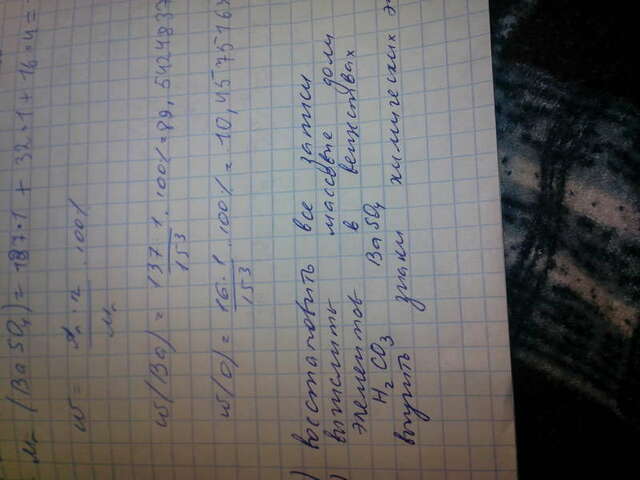 Mr (BaSO4) = 137·1 + 32·1 + 16·4 =
w = Ar · n / Mr · 100%
w(Ba) = 137·1 / 153 · 100% = 89,5424837
w(O) = 16·1 / 153 · 100% = 10,4575163
) восстановить все записи
) вычислить массовые доли
элементов в веществах
H2CO3 BaSO4
выучить знаки химических э